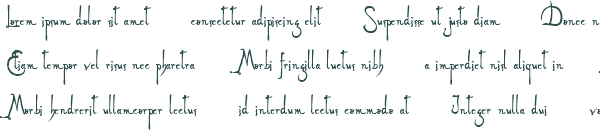 Lorem ipsum dolor sit amet consectetur adipiscing elit Suspendisse ut justo diam Donec n
Etiam tempor vel risus nec pharetra Morbi fringilla luctus nibh a imperdiet nisl aliquet in
Morbi hendrerit ullamcorper lectus id interdum lectus commodo at Integer nulla dui